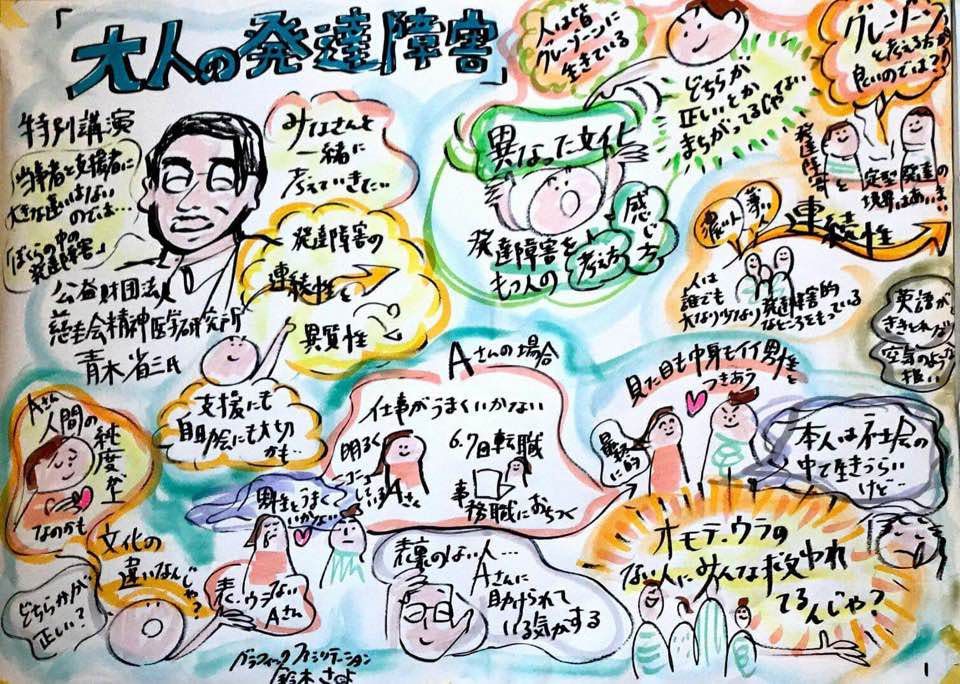 「大人の発達障害」
特別講演
当事者と支援者に
大きな違いはない
のでは…
「ぼくらの中の
発達障害」
公益財団法人
慈圭会精神医学研究所
青木省三氏
みなさんと
一緒に
考えていきたい
発達障害の
連続性と
異質性
支援にも
自助会にも大切
かも…
人は皆
グレーゾーンに
生きている
異なった文化
発達障害を
もつ人の
考え方
感じ方
どちらが
正しいとか
まちがってるじゃない
グレーゾーン
と考える方が
良いのでは?
発達障害と
定型発達の
境界はあいまい
濃い人
薄い人
連続性
人は
誰でも
大なり少なり発達障害的
なところをもっている
英語が
ききとれない
空気のような
扱い
Aさんの場合
仕事がうまくいかない
明るく
ニコニコ
しているAさん
6.7回転職
事務職におちつく
見た目も中身もイイ男性と
つきあう
最終的に
本人は社会の
中で生きづらい
けど…
Aさん
人間の
純度が上
なのかも
男性とうまく
いかない
文化の
違いなんじゃ?
どちらかが
正しい?
表、ウラない
Aさん
表裏のない人…
Aさんに
助けられて
いる気がする
オモテ、ウラの
ない人にみんな救われ
てるんじゃ?
グラフィックファシリテーション
鈴木さよ
1